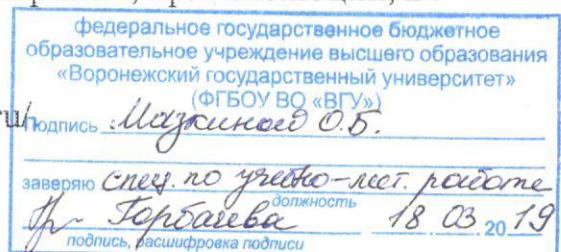 федеральное государственное бюджетное
образовательное учреждение высшего образования
«Воронежский государственный университет»
(ФГБОУ ВО «ВГУ»)
ru/
Подпись Мазкиной О.Б.
заверяю спец. по учебно-мет. работе
должность
Горбачева 18 03 2019
подпись, расшифровка подписи